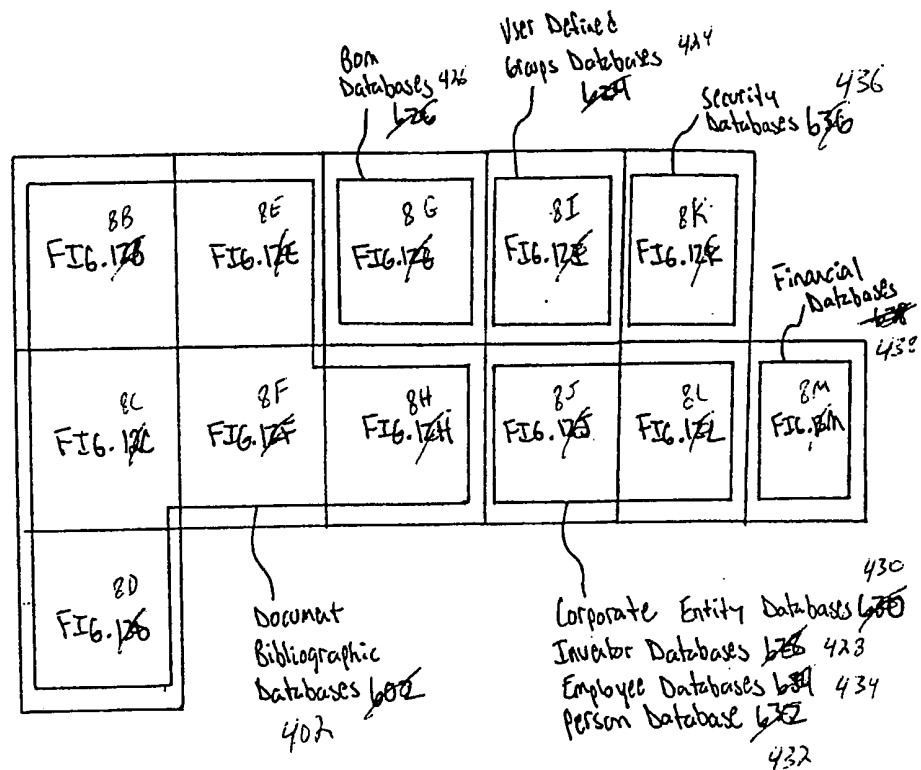 Bom
Databases 426
626
User Defined
Groups Databases 424
624
Security 436
Databases 636
8B
FIG. 12B
8E
FIG. 12E
8G
FIG. 12G
8I
FIG. 12I
8K
FIG. 12K
Financial
Databases
638
438
8C
FIG. 12C
8F
FIG. 12F
8H
FIG. 12H
8J
FIG. 12J
8L
FIG. 12L
8M
FIG. 12M
8D
FIG. 12D
Document
Bibliographic
Databases 602
402
430
Corporate Entity Databases 630
Inventor Databases 628 428
Employee Databases 634 434
Person Database 632
432